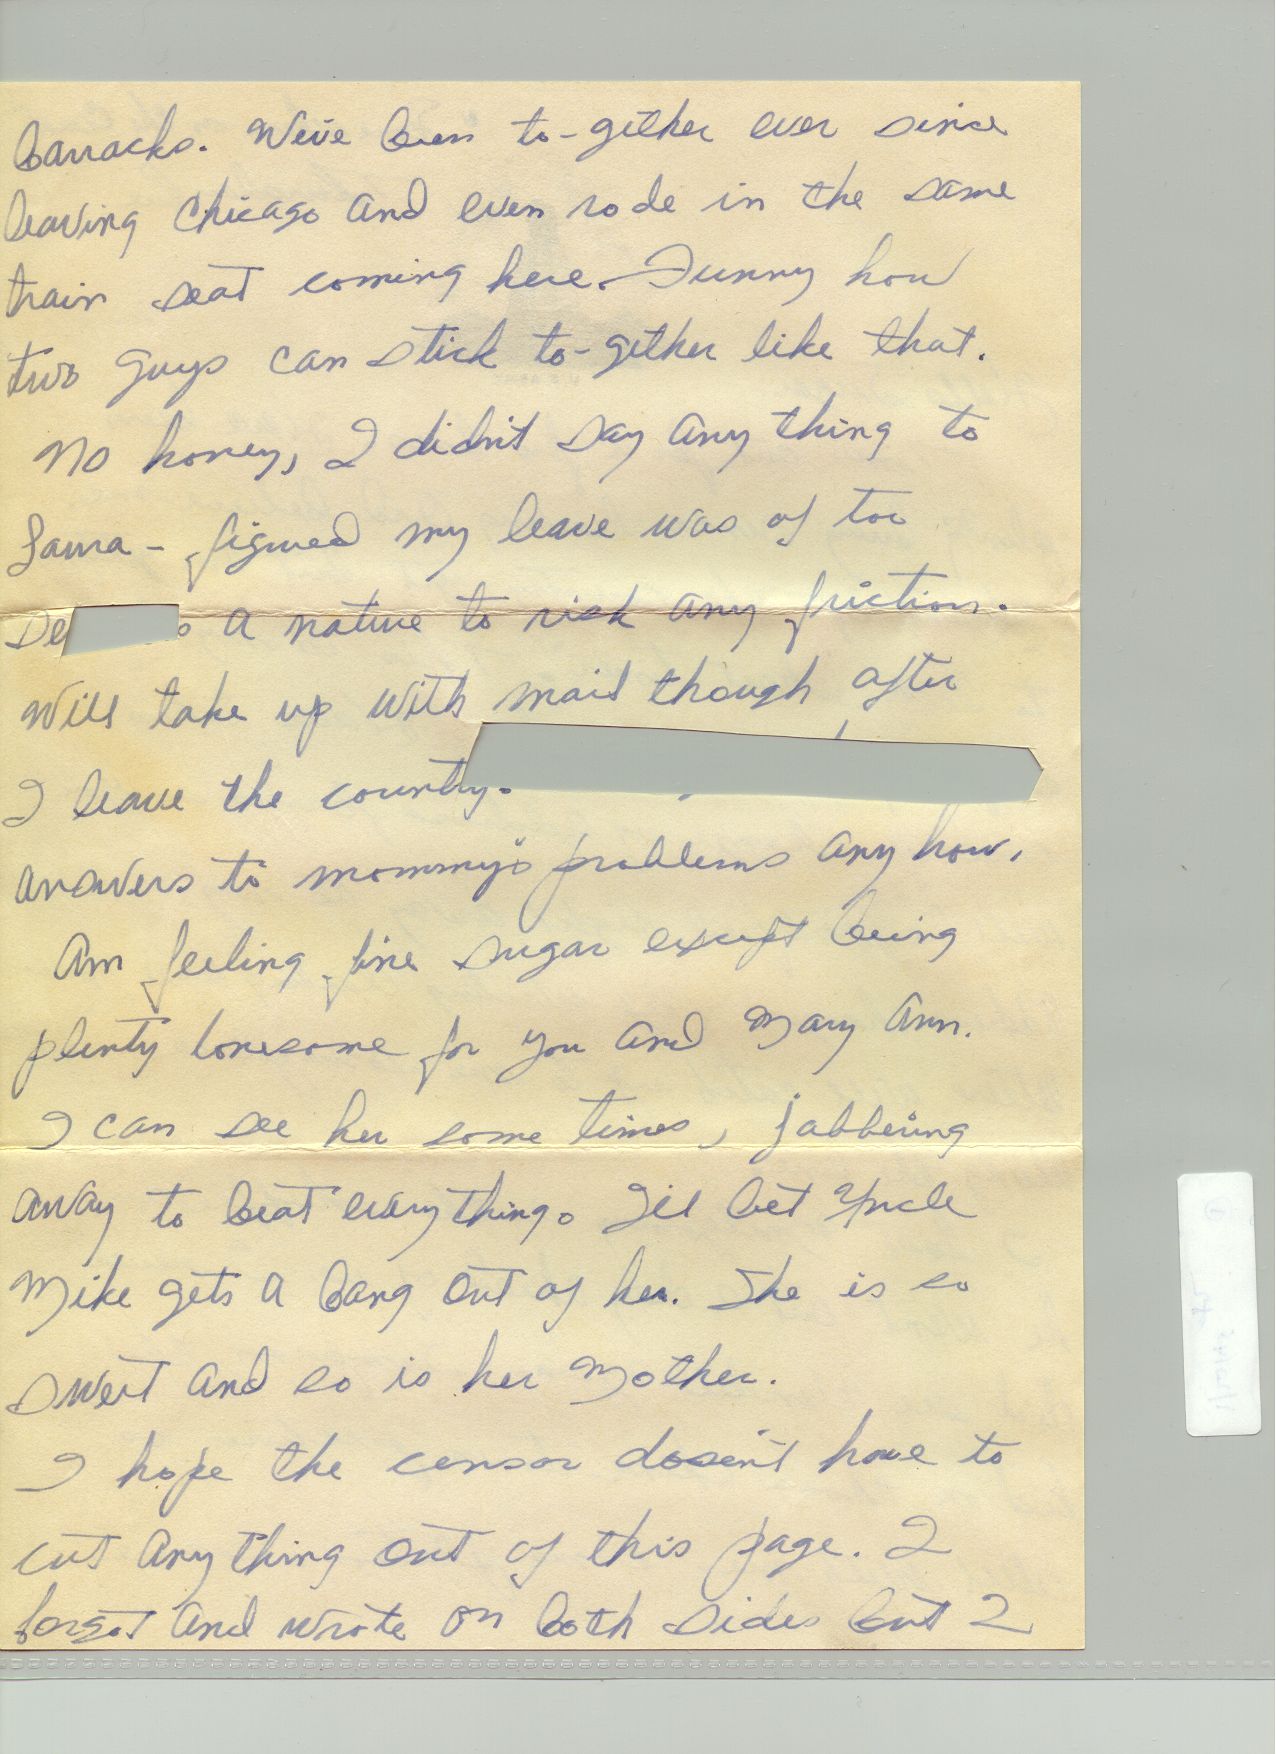 barracks. We've been to-gether ever since
leaving Chicago and even rode in the same
train seat coming here. Funny how
two guys can stick to-gether like that.
No honey, I didn't say any thing to
Laura - figured my leave was of too
se a nature to risk any friction.
Will take up with mail though after
I leave the country.
answers to mommy's problems any how.
Am feeling fine sugar except being
plenty lonesome for you and Mary Ann.
I can see her some times, jabbering
away to beat everything. I'll bet Uncle
Mike gets a bang out of her. She is so
sweet and so is her Mother.
I hope the censor doesn't have to
cut any thing out of this page. I
forgot and wrote on both sides but I